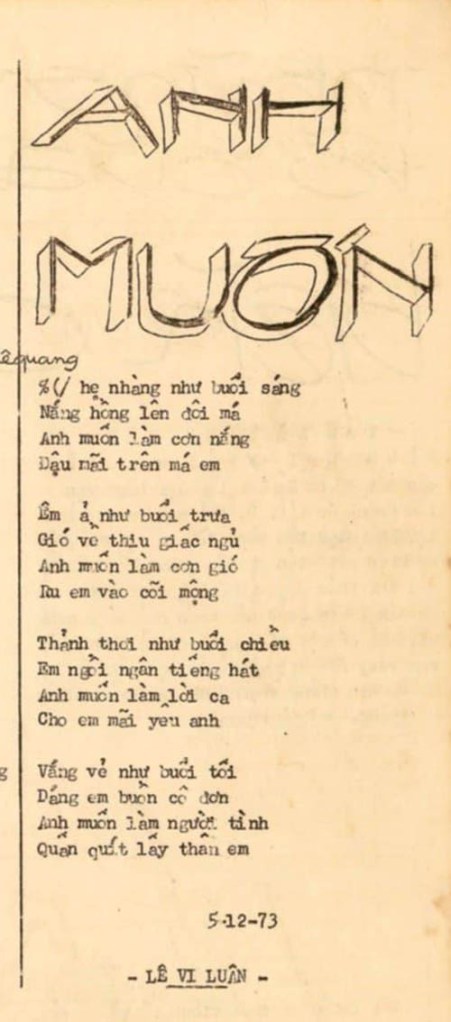 ANH
MUỐN
ê quang
%(/ hẹ nhàng như buổi sáng
Nắng hồng lên đôi má
Anh muốn làm cơn nắng
Đậu mãi trên má em
Êm ả như buổi trưa
Gió về thiu giấc ngủ
Anh muốn làm cơn gió
Ru em vào cõi mộng
Thảnh thơi như buổi chiều
Em ngồi ngân tiếng hát
Anh muốn làm lời ca
Cho em mãi yêu anh
g
Vắng vẻ như buổi tối
Dáng em buồn cô đơn
Anh muốn làm người tình
Quấn quít lấy thân em
5-12-73
- LÊ VI LUÂN -